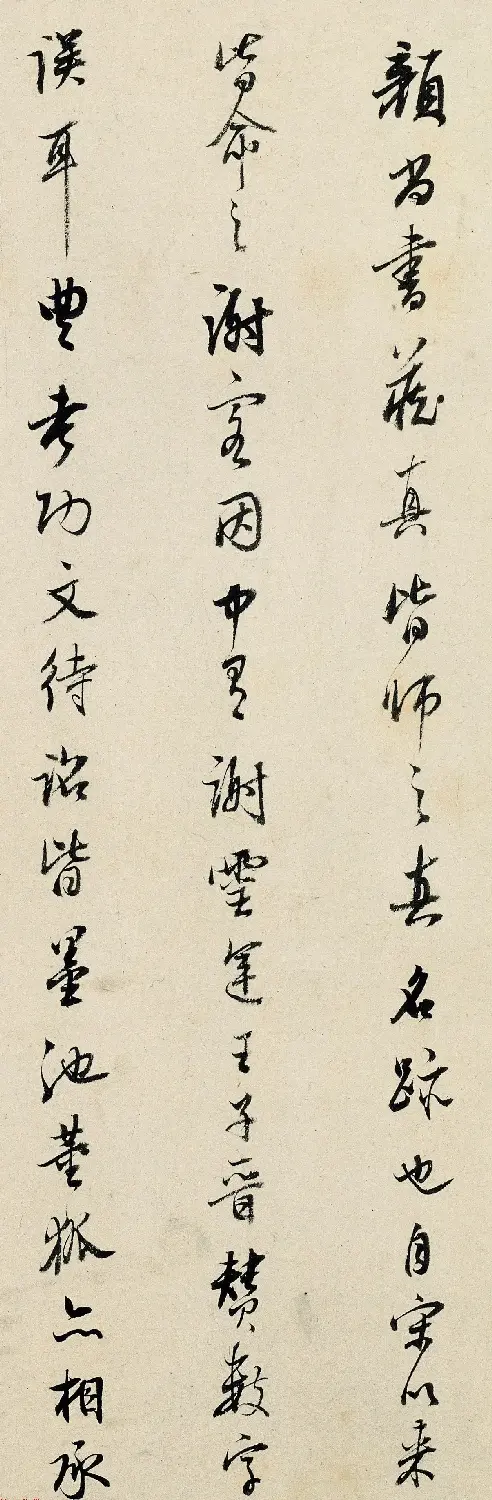 顏尚書藏真皆師之真名跡也自宋以來
皆命之謝客因中有謝靈運王子晉贊數字
誤耳豐考功文待詔皆墨池董狐亦相承